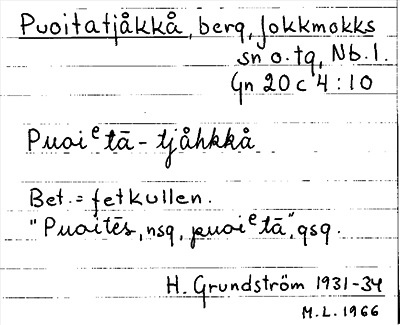 Puoitatjåkkå, berg, Jokkmokks
sn o. tg, Nb. l.
Gn 20 c 4:10
Puoiᵉtā-tjåhkkå
Bet. = fetkullen.
"Puoitēs, nsg, puoiᵉtā", gsg.
H. Grundström 1931-34
M.L. 1966